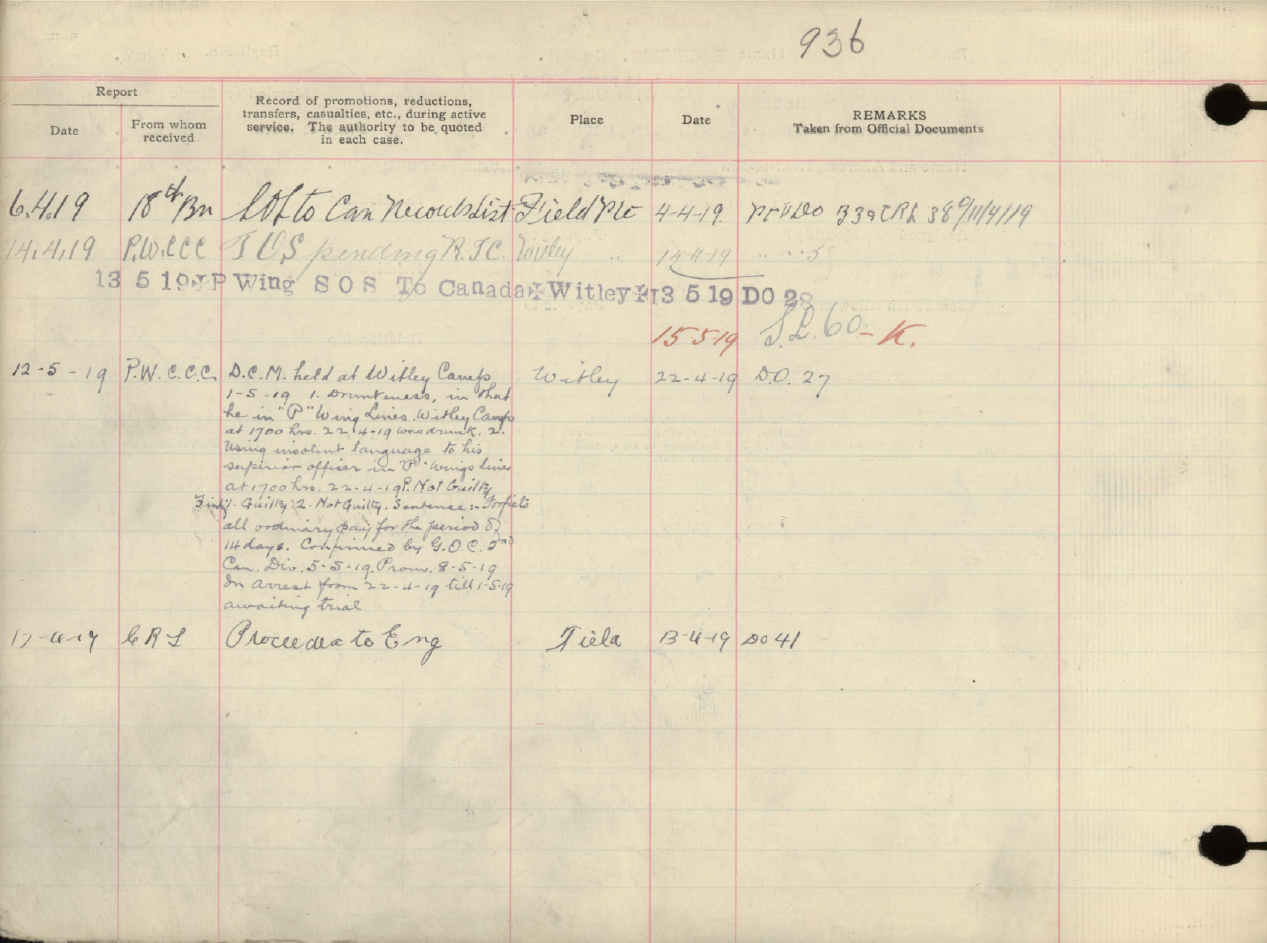 936
Report
Date
From whom
received
Record of promotions, reductions,
transfers, casualties, etc., during active
service. The authority to be quoted
in each case.
Place
Date
REMARKS
Taken from Official Documents
6.4.19 18th Bn SOS to Can Records List Field Pte 4-4-19. 38 11/4/19
14.4.19 P.W.CCC TOS pending R.T.C. Witley " 14.4.19 " " 5
13 5 19 P Wing SOS To Canada Witley 13 5 19 DO 28
15-5-19 S.L. 60 - K.
12-5-19 P.W.C.C.C. D.C.M. held at Witley Camp Witley 22-4-19 D.O. 27
1-5-19 1. Drunkeness, in that
he in "P" Wing Lines. Witley Camp
at 1700 hrs. 22-4-19 was drunk. 2.
Using insolent language to his
superior officer in "P" Wings lines
at 1700 hrs. 22-4-19 P. Not Guilty
Find 1. Guilty 2. Not Guilty. Sentence :- Forfeits
all ordinary pay for the period of
14 days. Confirmed by G.O.C. 2nd
Can. Div. 5-5-19. Prom. 8-5-19
In arrest from 22-4-19 till 1-5-19
awaiting trial
17-4-19 CRL Proceeded to Eng Field 13-4-19 DO 41